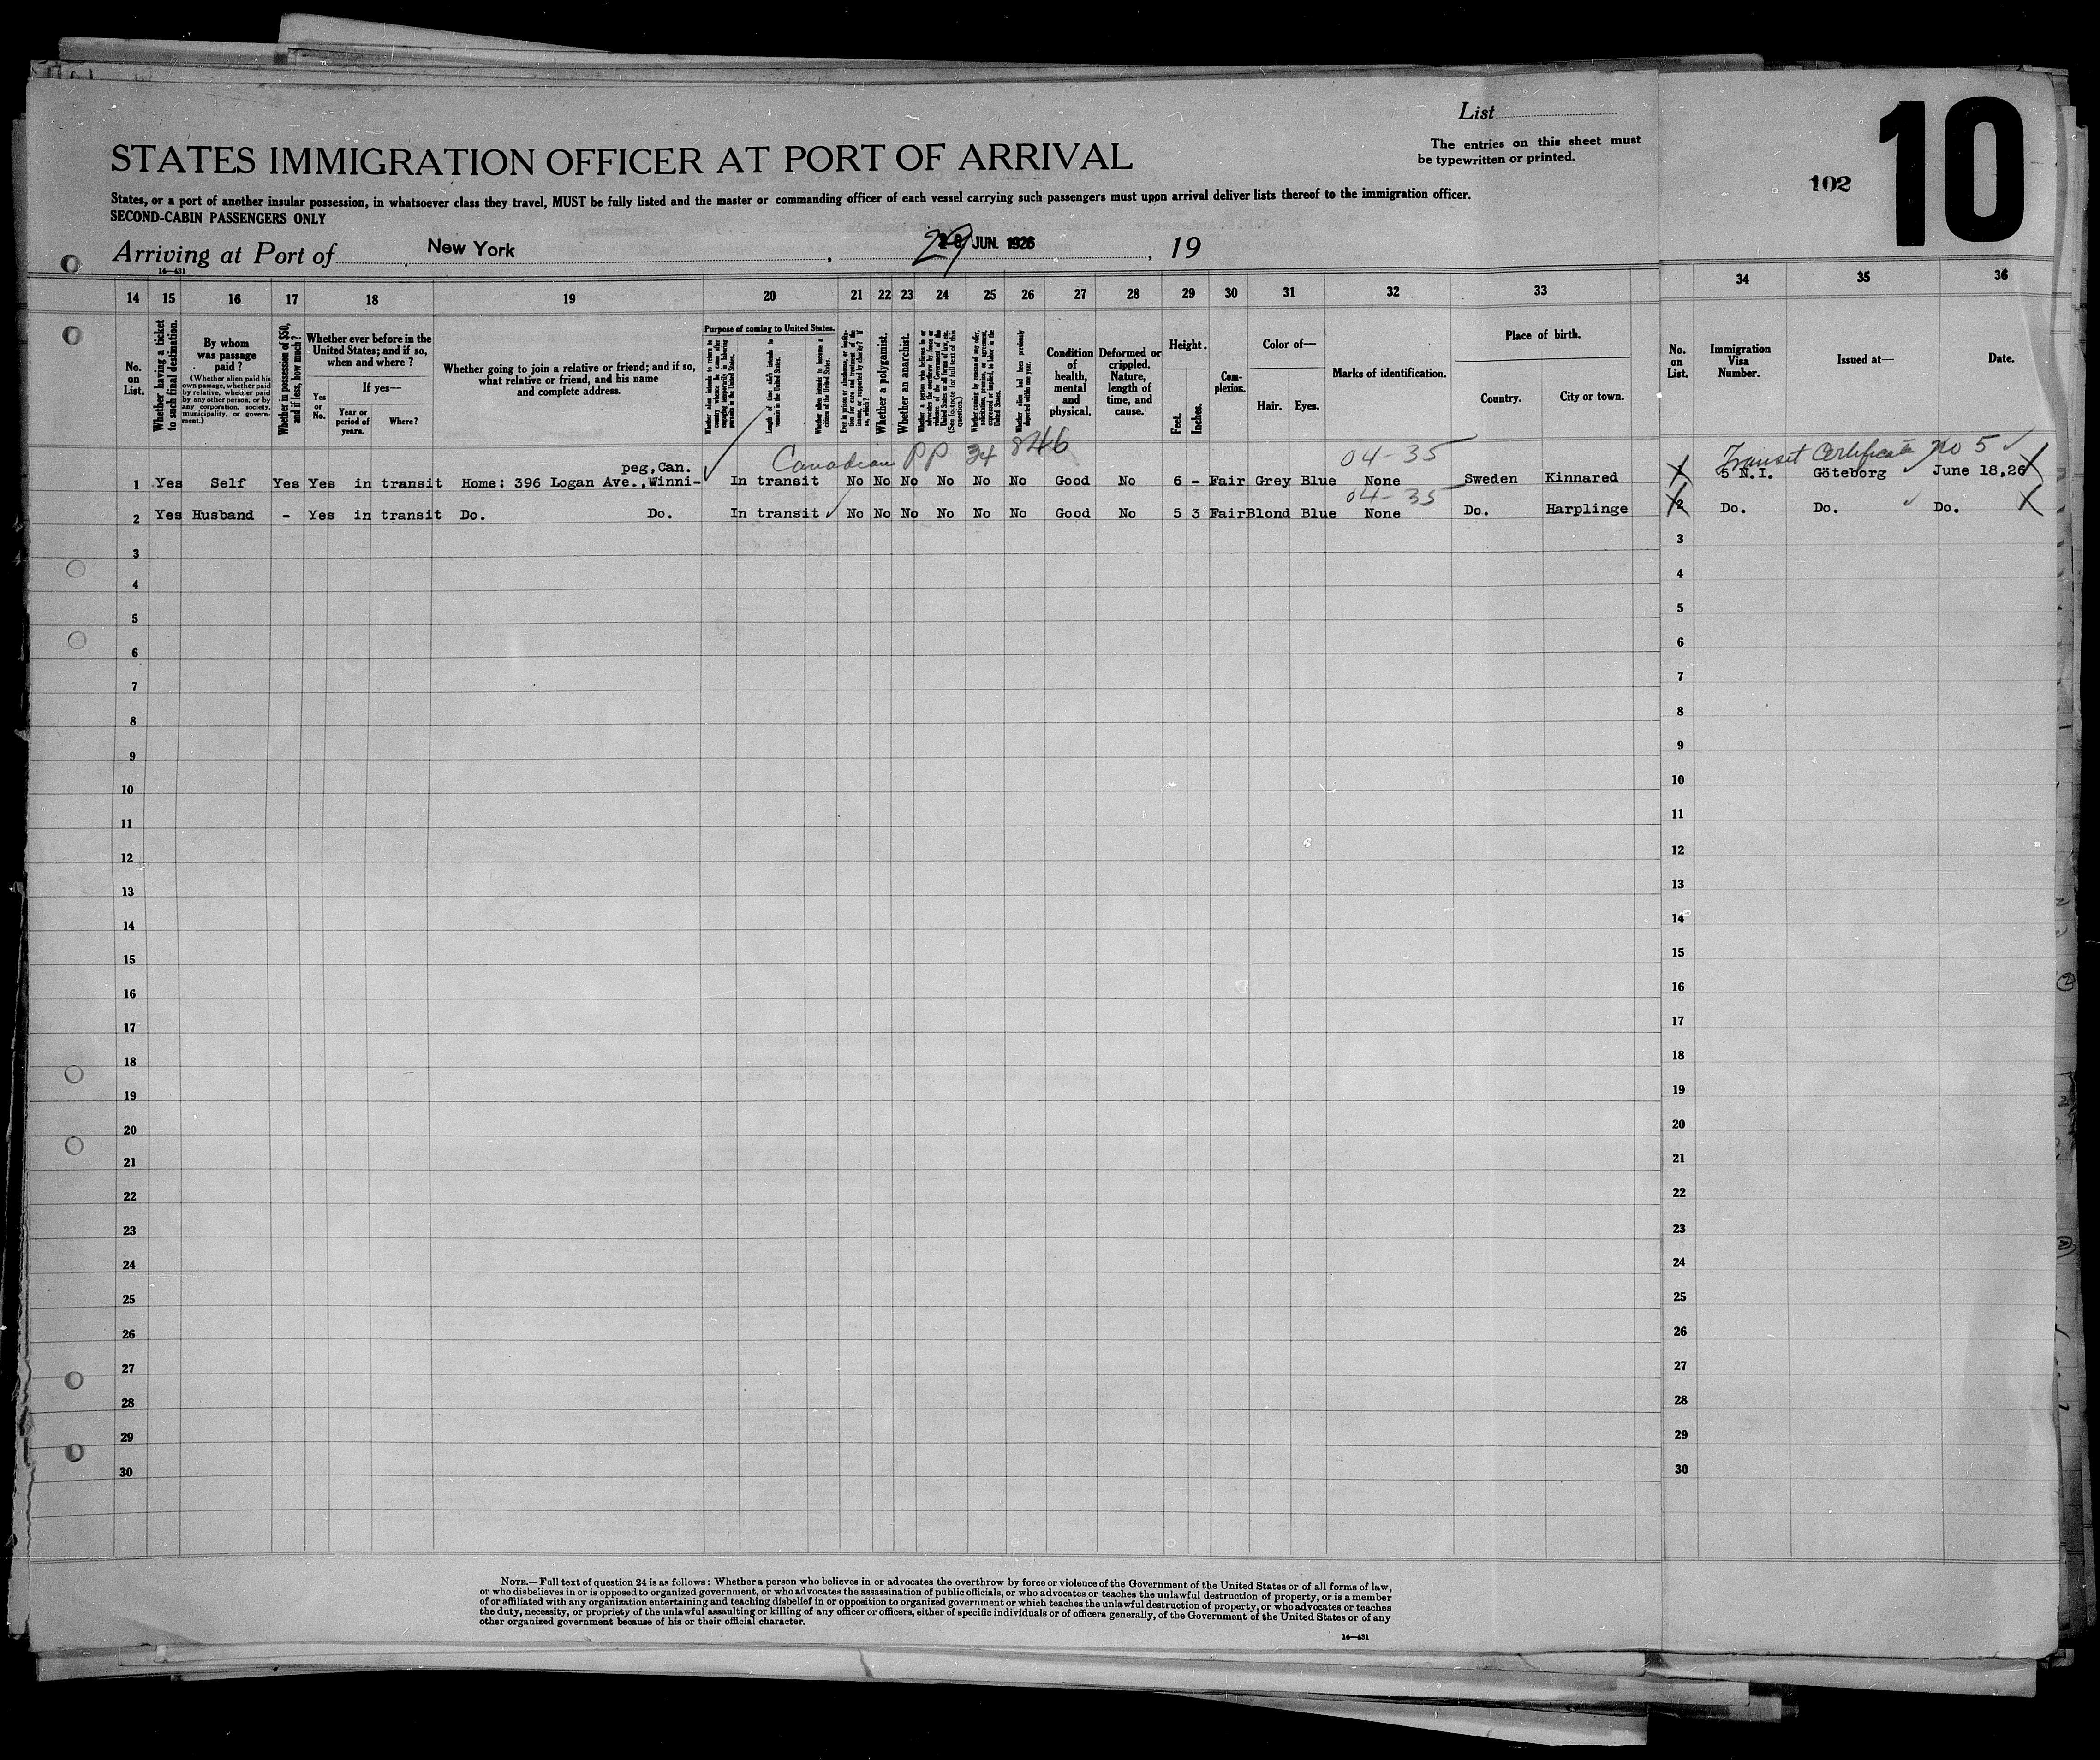 List
The entries on this sheet must
be typewritten or printed.
10
102
STATES IMMIGRATION OFFICER AT PORT OF ARRIVAL
States, or a port of another insular possession, in whatsoever class they travel, MUST be fully listed and the master or commanding officer of each vessel carrying such passengers must upon arrival deliver lists thereof to the immigration officer.
SECOND-CABIN PASSENGERS ONLY
Arriving at Port of New York , 29 JUN. 1926 , 19
14—431
14 15 16 17 18 19 20 21 22 23 24 25 26 27 28 29 30 31 32 33 34 35 36
No. on List.
Whether having a ticket to such final destination.
By whom was passage paid?
(Whether alien paid his own passage, whether paid by relative, whether paid by any other person, or by any corporation, society, municipality, or government.)
Whether in possession of $50, and if less, how much?
Whether ever before in the United States; and if so, when and where?
Yes or No.
If yes—
Year or period of years.
Where?
Whether going to join a relative or friend; and if so, what relative or friend, and his name and complete address.
Purpose of coming to United States.
Whether alien intends to return to country whence he came after engaging temporarily in laboring pursuits in the United States.
Length of time alien intends to remain in the United States.
Whether alien intends to become a citizen of the United States.
Whether a polygamist.
Whether an anarchist.
Whether coming by reason of any offer, solicitation, promise, or agreement, expressed or implied, to labor in the United States.
Whether alien had been previously deported within one year.
Condition of health, mental and physical.
Deformed or crippled. Nature, length of time, and cause.
Height.
Feet. Inches.
Complexion.
Color of—
Hair. Eyes.
Marks of identification.
Place of birth.
Country. City or town.
No. on List.
Immigration Visa Number.
Issued at—
Date.
Canadian PP 34 8246 04-35 Transit Certificate No 5
peg,Can.
1 Yes Self Yes Yes in transit Home: 396 Logan Ave.,Winni- In transit No No No No No No Good No 6 - Fair Grey Blue None Sweden Kinnared 1 5 N.I. Göteborg June 18,26
04-35
2 Yes Husband - Yes in transit Do. Do. In transit No No No No No No Good No 5 3 Fair Blond Blue None Do. Harplinge 2 Do. Do. Do.
3 3
4 4
5 5
6 6
7 7
8 8
9 9
10 10
11 11
12 12
13 13
14 14
15 15
16 16
17 17
18 18
19 19
20 20
21 21
22 22
23 23
24 24
25 25
26 26
27 27
28 28
29 29
30 30
NOTE.—Full text of question 24 is as follows: Whether a person who believes in or advocates the overthrow by force or violence of the Government of the United States or of all forms of law,
or who disbelieves in or is opposed to organized government, or who advocates the assassination of public officials, or who advocates or teaches the unlawful destruction of property, or is a member
of or affiliated with any organization entertaining and teaching disbelief in or opposition to organized government or which teaches the unlawful destruction of property, or who advocates or teaches
the duty, necessity, or propriety of the unlawful assaulting or killing of any officer or officers, either of specific individuals or of officers generally, of the Government of the United States or of any
other organized government because of his or their official character.
14—431